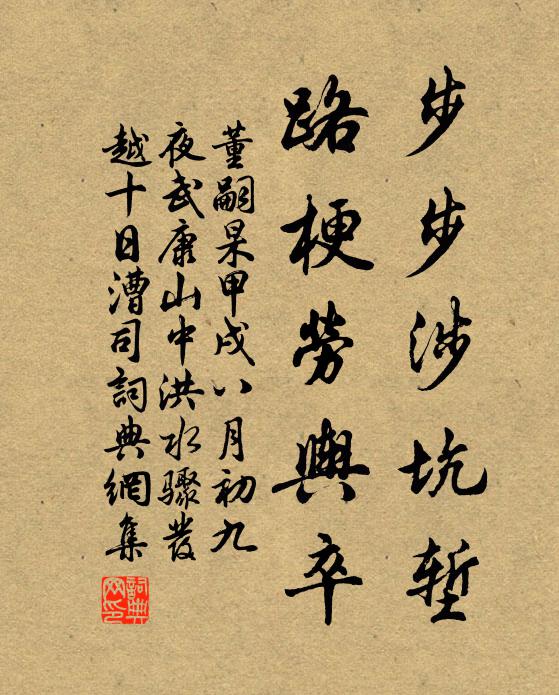 步步涉坑塹
路梗勞輿卒
董嗣杲甲戌八月初九
夜武康山中洪水驟發
越十日漕司詞典網集
詞典
网印